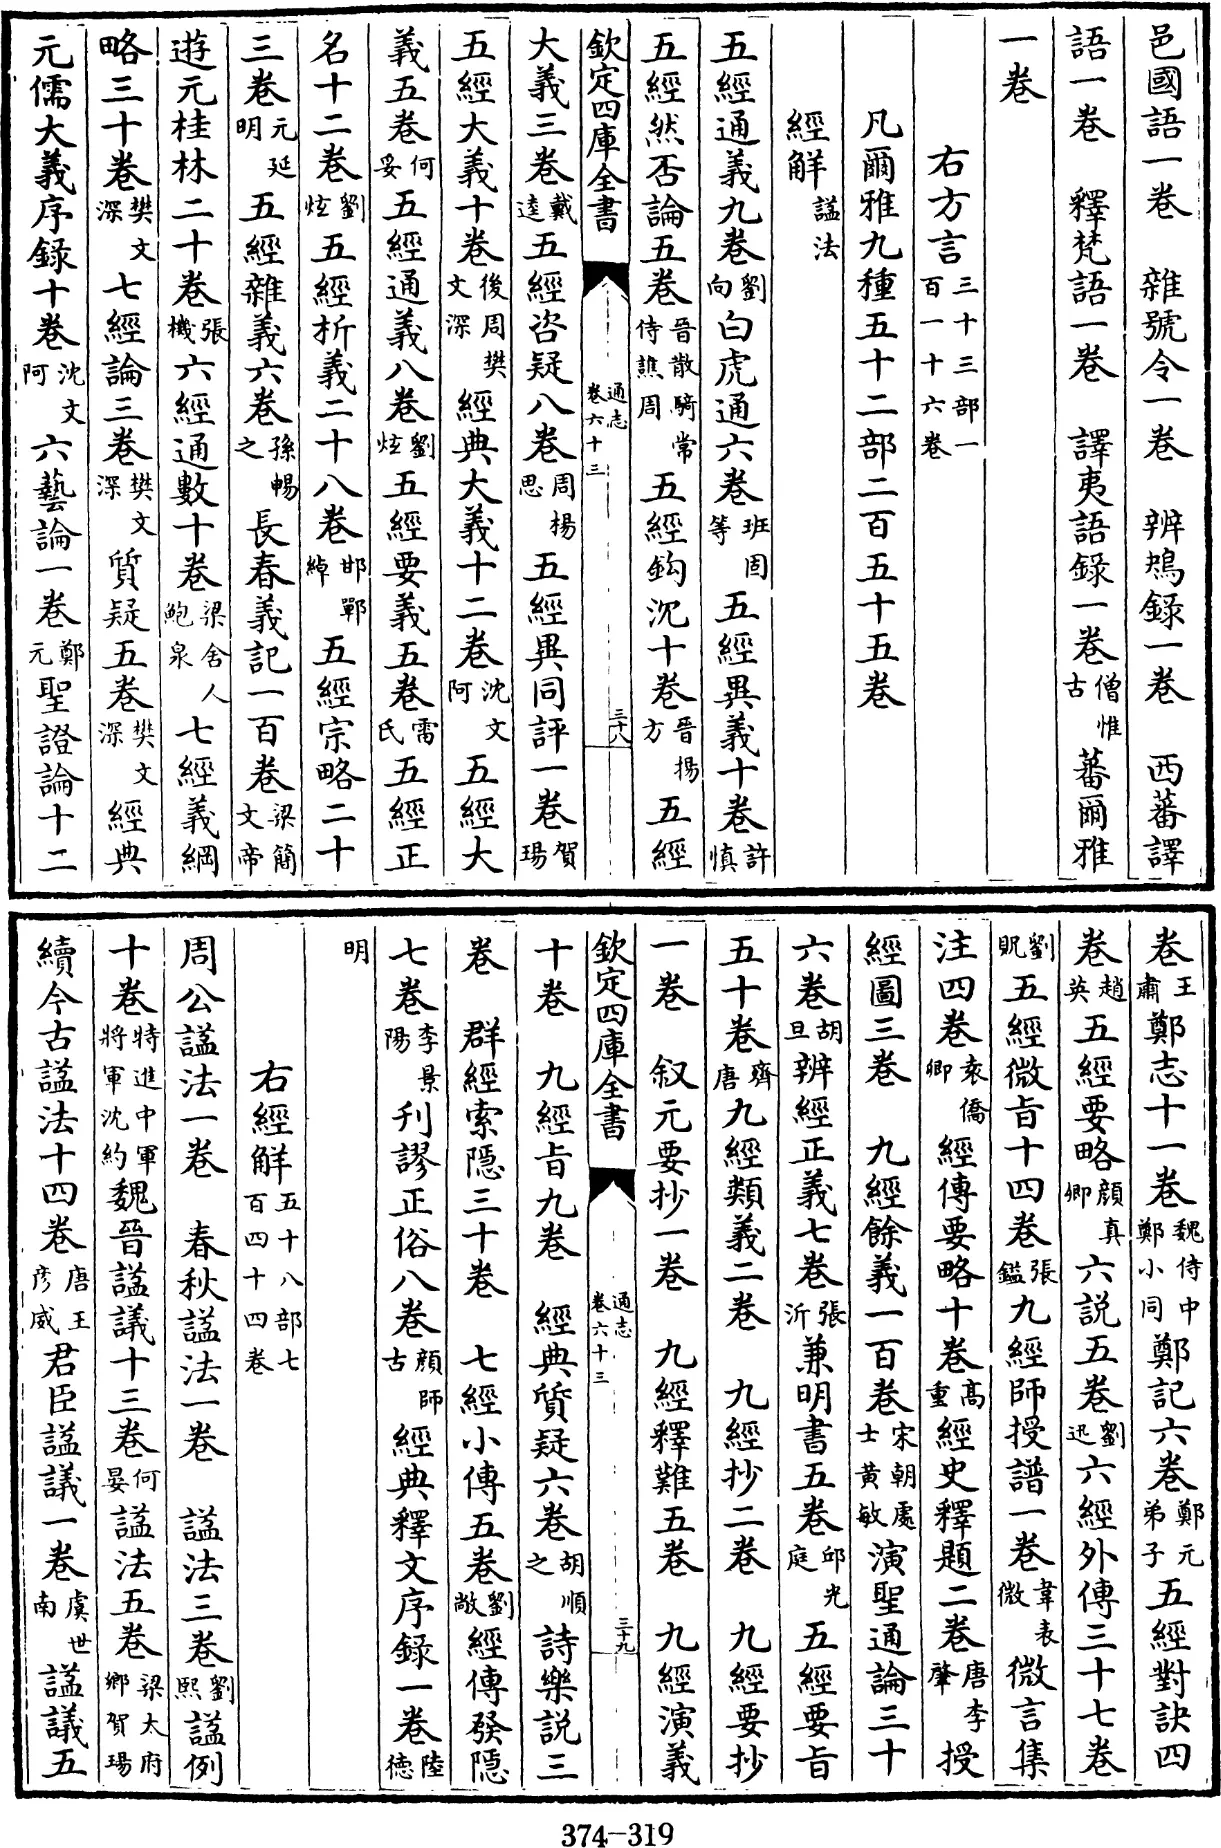 邑國語一卷　雜號令一卷　辨鴂錄一卷　西蕃譯
語一卷　釋梵語一卷　譯夷語錄一卷僧惟古　蕃爾雅
一卷
右方言三十三部一百一十六卷
凡爾雅九種五十二部二百五十五卷
經解　諡法
五經通義九卷劉向白虎通六卷班固等　五經異義十卷許慎
五經然否論五卷晉散騎常侍譙周　五經鈎沈十卷晉楊方　五經
欽定四庫全書　通志卷六十三　三十八
大義三卷戴逵五經咨疑八卷周楊思　五經異同評一卷賀瑒
五經大義十卷後周樊文深　經典大義十二卷沈文阿　五經大
義五卷何妥五經通義八卷劉炫五經要義五卷雷氏五經正
名十二卷劉炫五經析義二十八卷邯鄲綽　五經宗略二十
三卷元延明　五經雜義六卷孫暢之　長春義記一百卷梁簡文帝
遊元桂林二十卷張機六經通數十卷梁舍人鮑泉　七經義綱
略三十卷樊文深　七經論三卷樊文深　質疑五卷樊文深　經典
元儒大義序錄十卷沈文阿　六藝論一卷鄭元聖證論十二
卷王肅鄭志十一卷魏侍中鄭小同鄭記六卷鄭元弟子五經對訣四
卷趙英五經要略顏真卿　六説五卷劉迅六經外傳三十七卷
劉貺五經微旨十四卷張鎰九經師授譜一卷韋表微　微言集
注四卷袁僑卿　經傳要略十卷高重經史釋題二卷唐李肇　授
經圖三卷　九經餘義一百卷宋朝處士黃敏　演聖通論三十
六卷胡旦辨經正義七卷張沂兼明書五卷邱光庭　五經要旨
五十卷齊唐九經類義二卷　九經抄二卷　九經要抄
一卷　叙元要抄一卷　九經釋難五卷　九經演義
欽定四庫全書　通志卷六十三　三十九
十卷　九經旨九卷　經典質疑六卷胡順之　詩樂説三
卷　群經索隱三十卷　七經小傳五卷劉敞經傳發隱
七卷李景陽　刋謬正俗八卷顔師古　經典釋文序錄一卷陸德
明
右經解五十八部七百四十四卷
周公諡法一卷　春秋諡法一卷　諡法三卷劉熙諡例
十卷特進中軍將軍沈約魏晉諡議十三卷何晏諡法五卷梁太府鄉賀瑒
續今古諡法十四卷唐王彦威君臣諡議一卷虞世南　諡議五
374-319